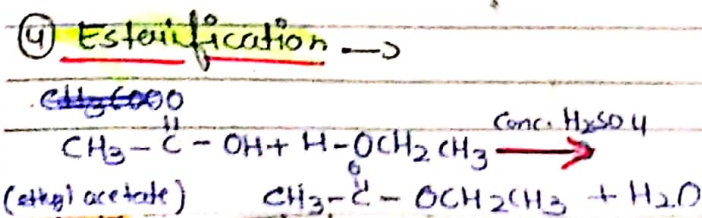 ④ Esterification →
CH3COOO
CH3 - C - OH + H - OCH2CH3 Conc. H2SO4 →
O
(ethyl acetate) CH3 - C - OCH2CH3 + H2O